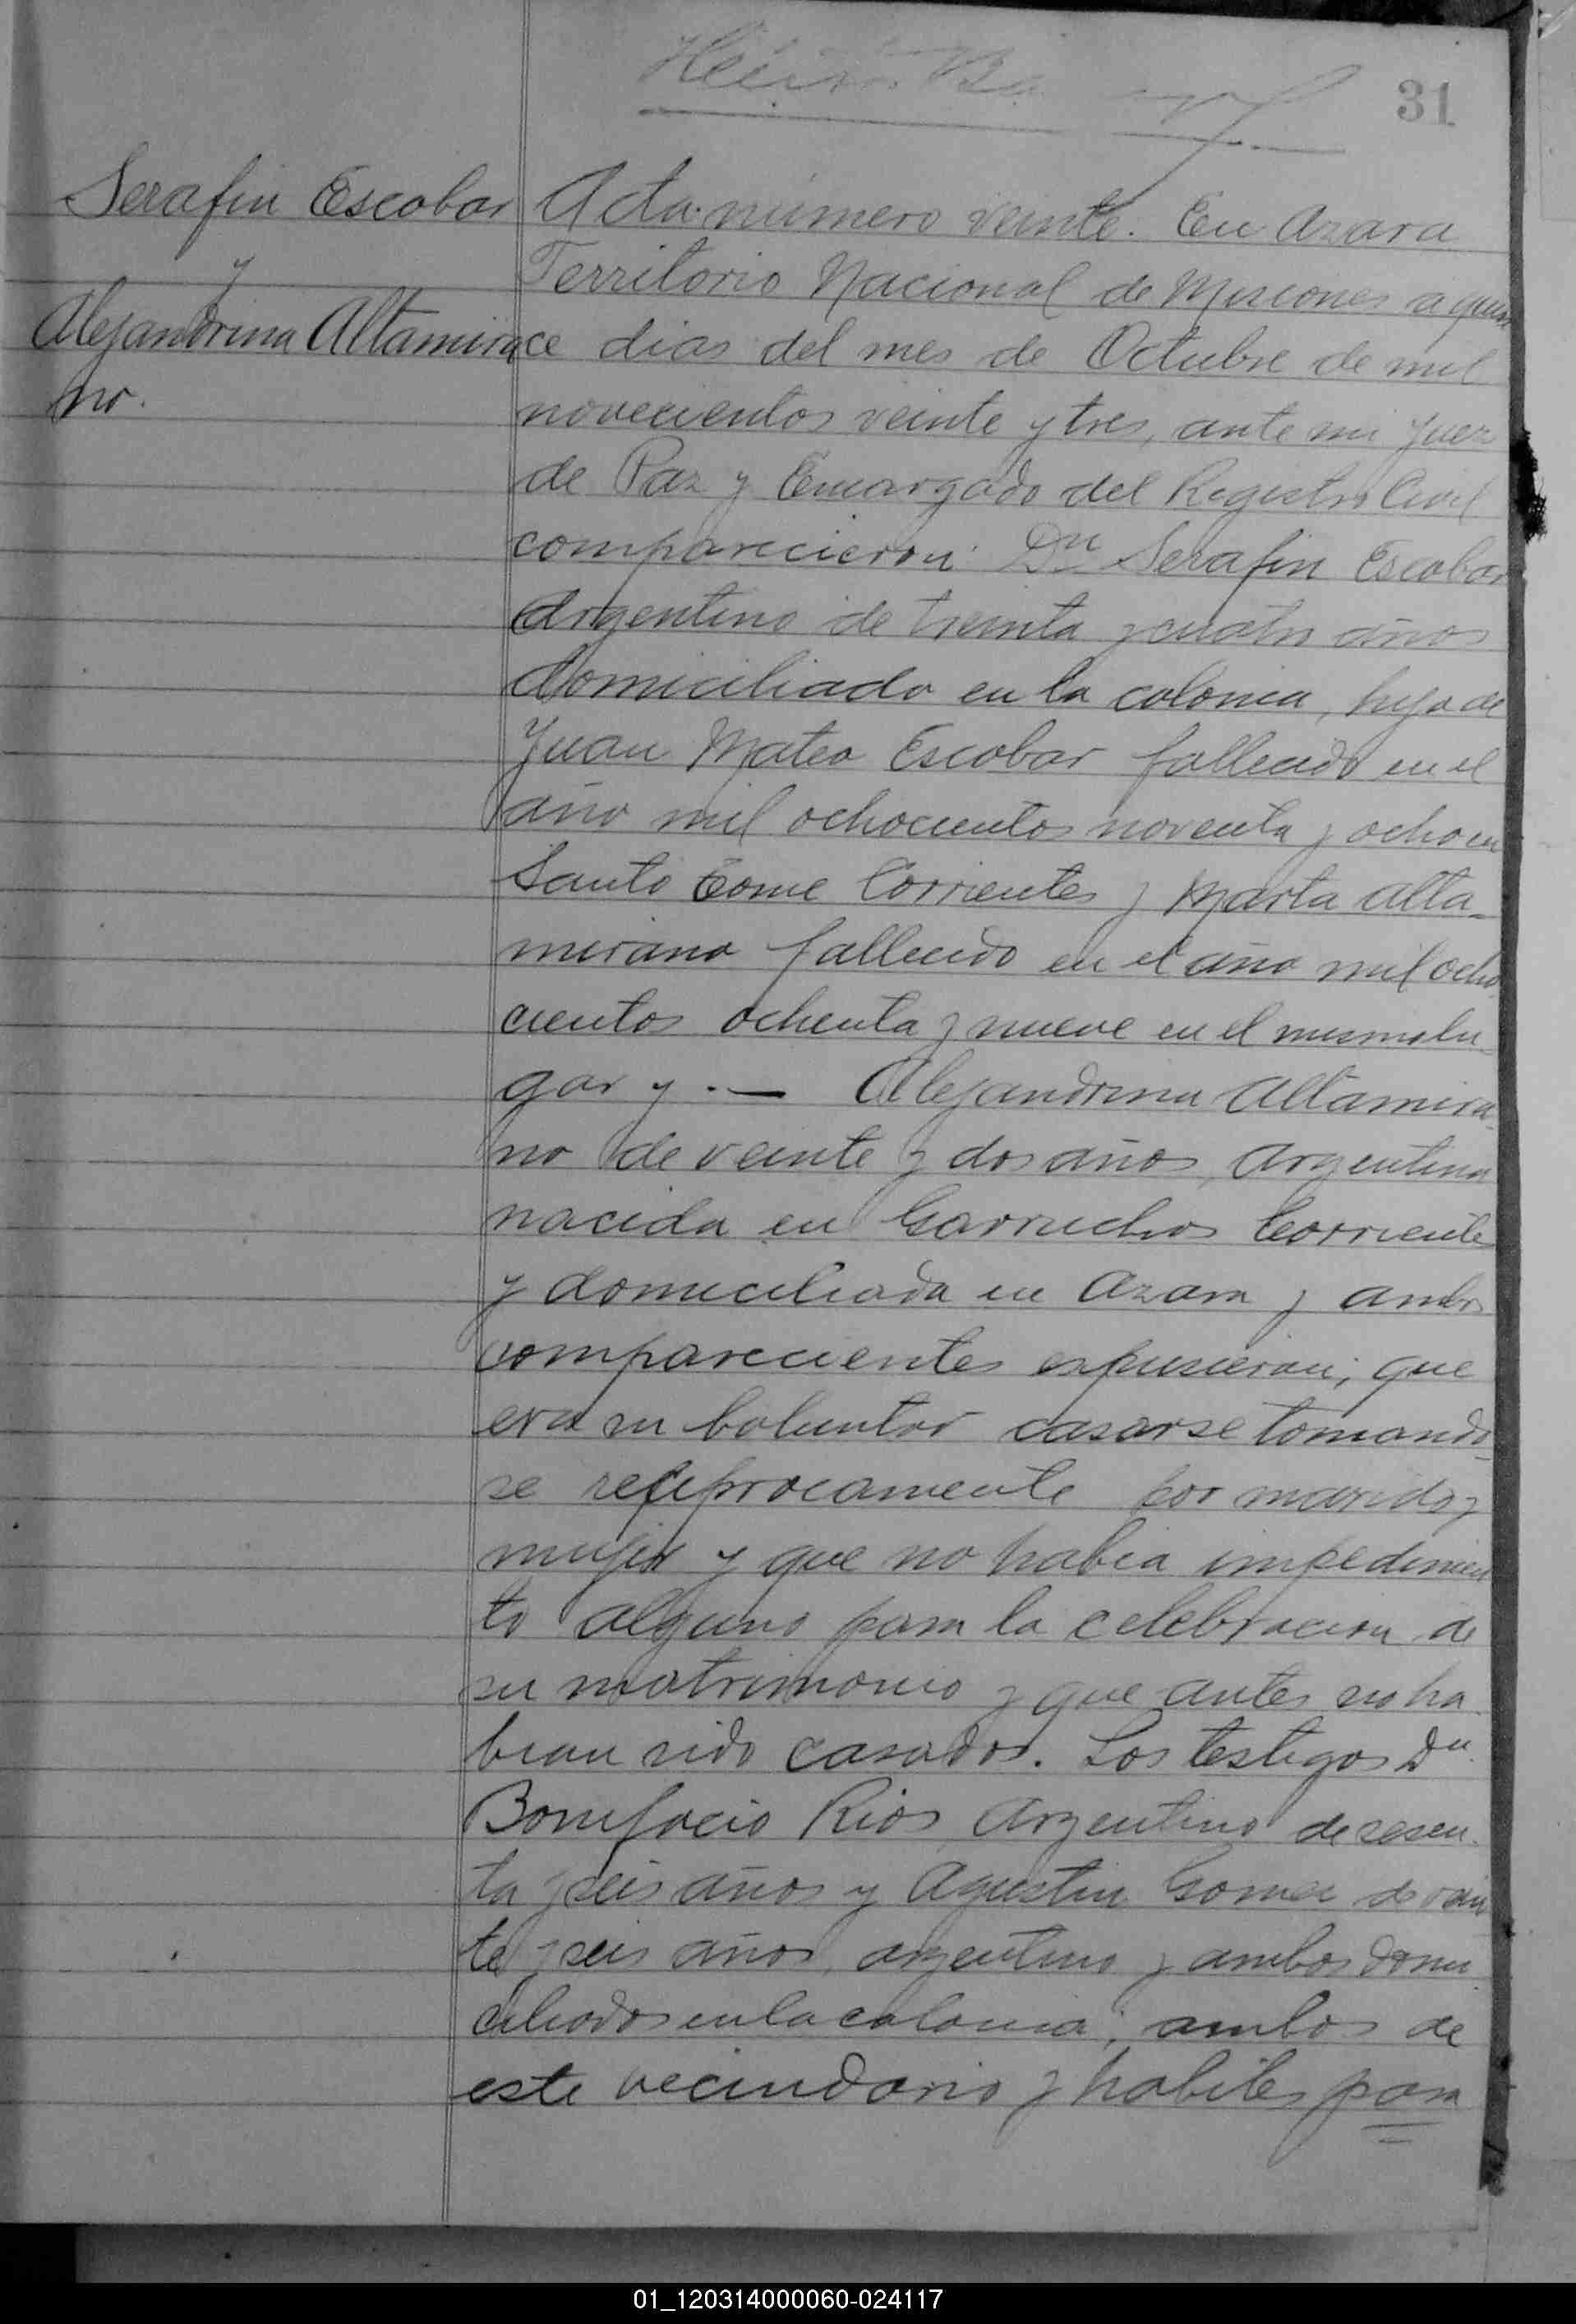 31
Serafin Escobar
y
Alejandrina Altamira
no.
Acta número veinte. En Azara
Territorio Nacional de Misiones a quin
ce dias del mes de Octubre de mil
novecientos veinte y tres, ante mi Juez
de Paz y Encargado del Registro Civil
comparecieron: Dn Serafin Escobar
Argentino de treinta y cuatro años
domiciliado en la colonia, hijo de
Juan Mateo Escobar fallecido en el
año mil ochocientos noventa y ocho en
Santo Tome Corrientes y Marta Alta-
mirano fallecido en el año mil ocho
cientos ochenta y nueve en el mismo lu-
gar y . — Alejandrina Altamira
no de veinte y dos años, Argentina
nacida en Garruchos Corrientes
y domiciliada en Azara y ambos
comparecientes expusieron; que
era su boluntad casarse tomando
se reciprocamente por marido y
mujer y que no habia impedimien
to alguno para la celebracion de
su matrimonio y que antes no ha-
bian sido casados. Los testigos Dn
Bonifacio Rios Argentino de sesen-
ta y seis años y Agustin Gomez de vein
te y seis años, argentino y ambos domi-
ciliados en la colonia; ambos de
este vecindario y habiles para
01_120314000060-024117